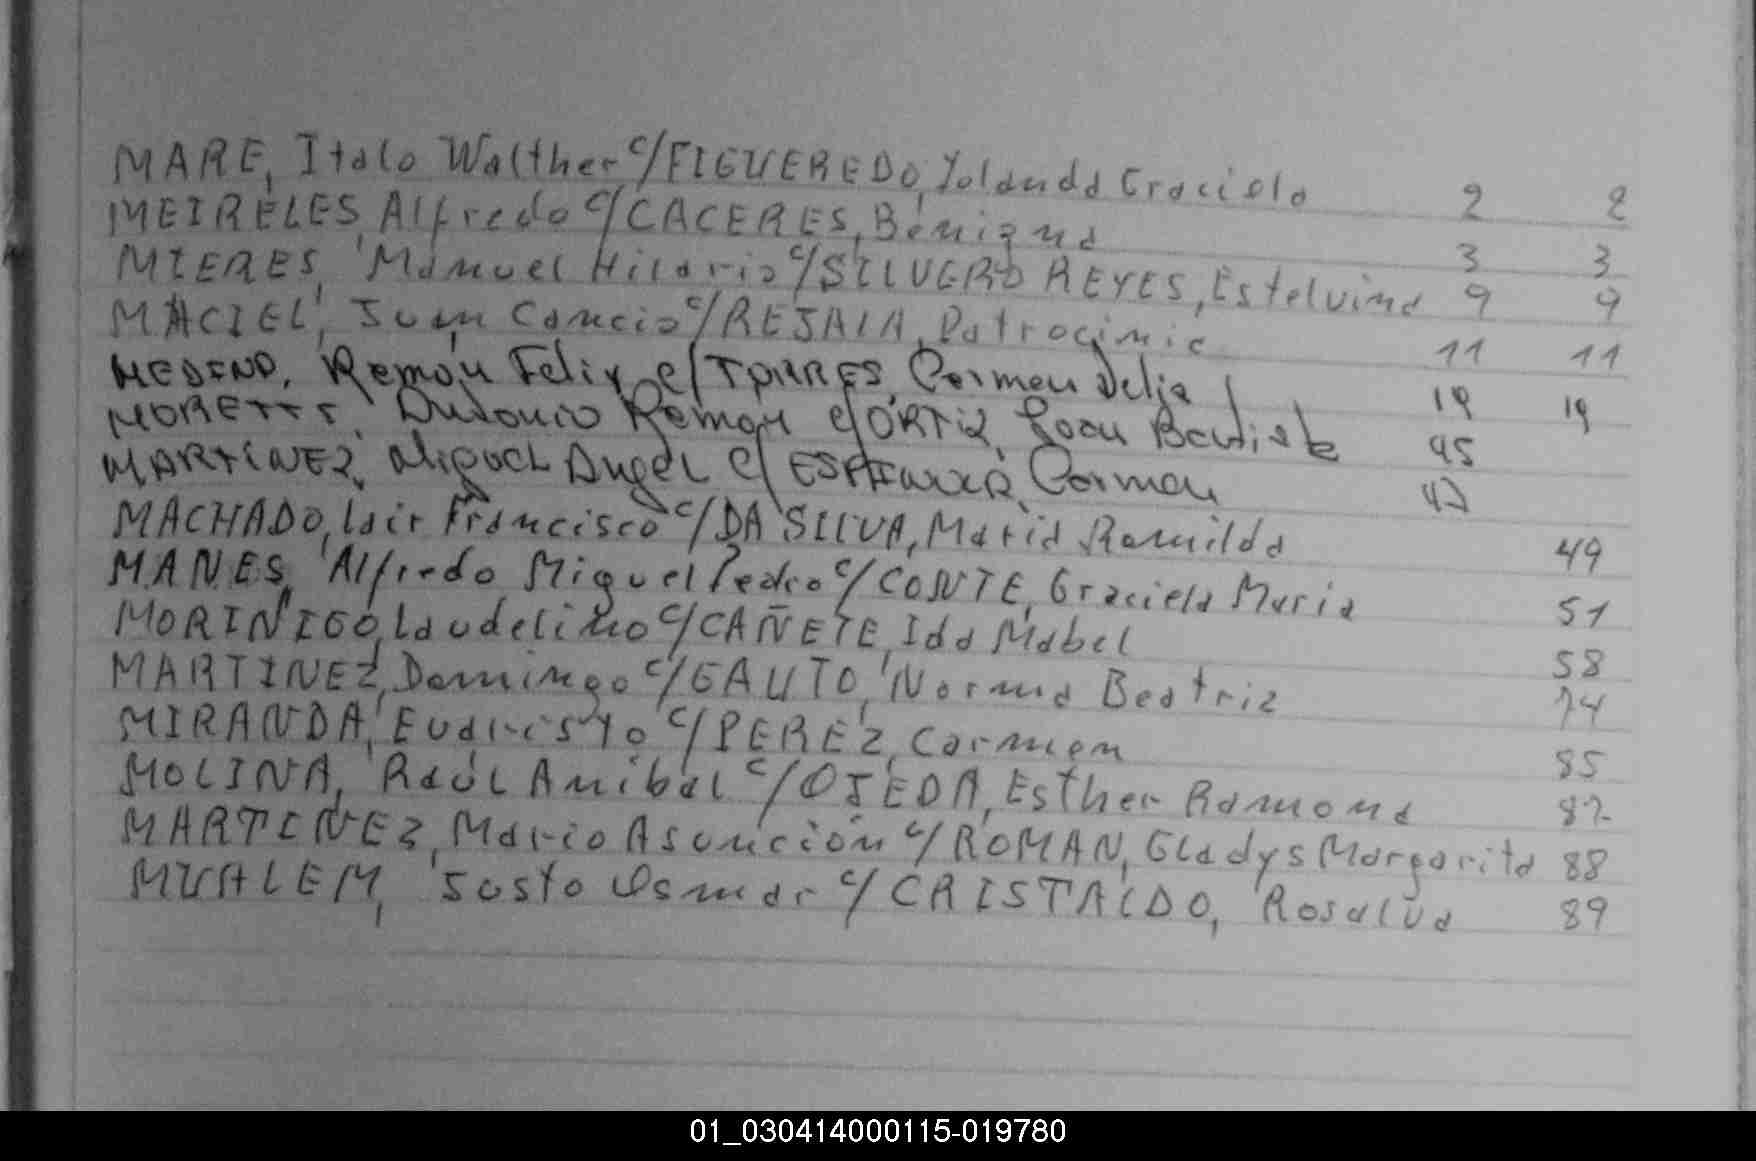 MARE, Italo Walther c/FIGUEREDO, Yolanda Graciela 2 2
MEIRELES, Alfredo c/CACERES, Benigna 3 3
MIERES, Manuel Hilario c/SILVERO REYES, Estelvina 9 9
MACIEL, Juan Cancio c/REJALA, Patrocinia 11 11
MEDINA, Ramón Felix c/TORRES, Carmen Delia 19 19
MORETTI, Antonio Ramon c/ORTIZ, 45
MARTÍNEZ, Miguel Angel c/ESPINOZA, Carmen 47
MACHADO, Lair Francisco c/DA SILVA, Maria Romilda 49
MANES, Alfredo Miguel Pedro c/CONTE, Graciela Maria 51
MORINIGO, Laudelino c/CAÑETE, Ida Mabel 58
MARTINEZ, Domingo c/GAUTO, Norma Beatriz 74
MIRANDA, Evaristo c/PEREZ, Carmen 85
MOLINA, Raúl Anibal c/OJEDA, Esther Ramona 87
MARTINEZ, Mario Asunción c/ROMAN, Gladys Margarita 88
MUALEM, Justo Osmar c/CRISTALDO, Rosalva 89
01_030414000115-019780